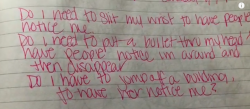 Do I need to slit my wrist to have people
notice me
Do I need to put a bullet thru my head
have people notice im around and
then disappear
Do I have to jump off a building
to have her notice me?